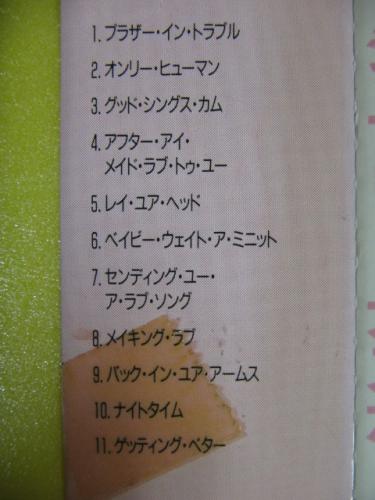 1. ブラザー・イン・トラブル
2. オンリー・ヒューマン
3. グッド・シングス・カム
4. アフター・アイ・
メイド・ラブ・トゥ・ユー
5. レイ・ユア・ヘッド
6. ベイビー・ウェイト・ア・ミニット
7. センディング・ユー・
ア・ラブ・ソング
8. メイキング・ラブ
9. バック・イン・ユア・アームス
10. ナイトタイム
11. ゲッティング・ベター